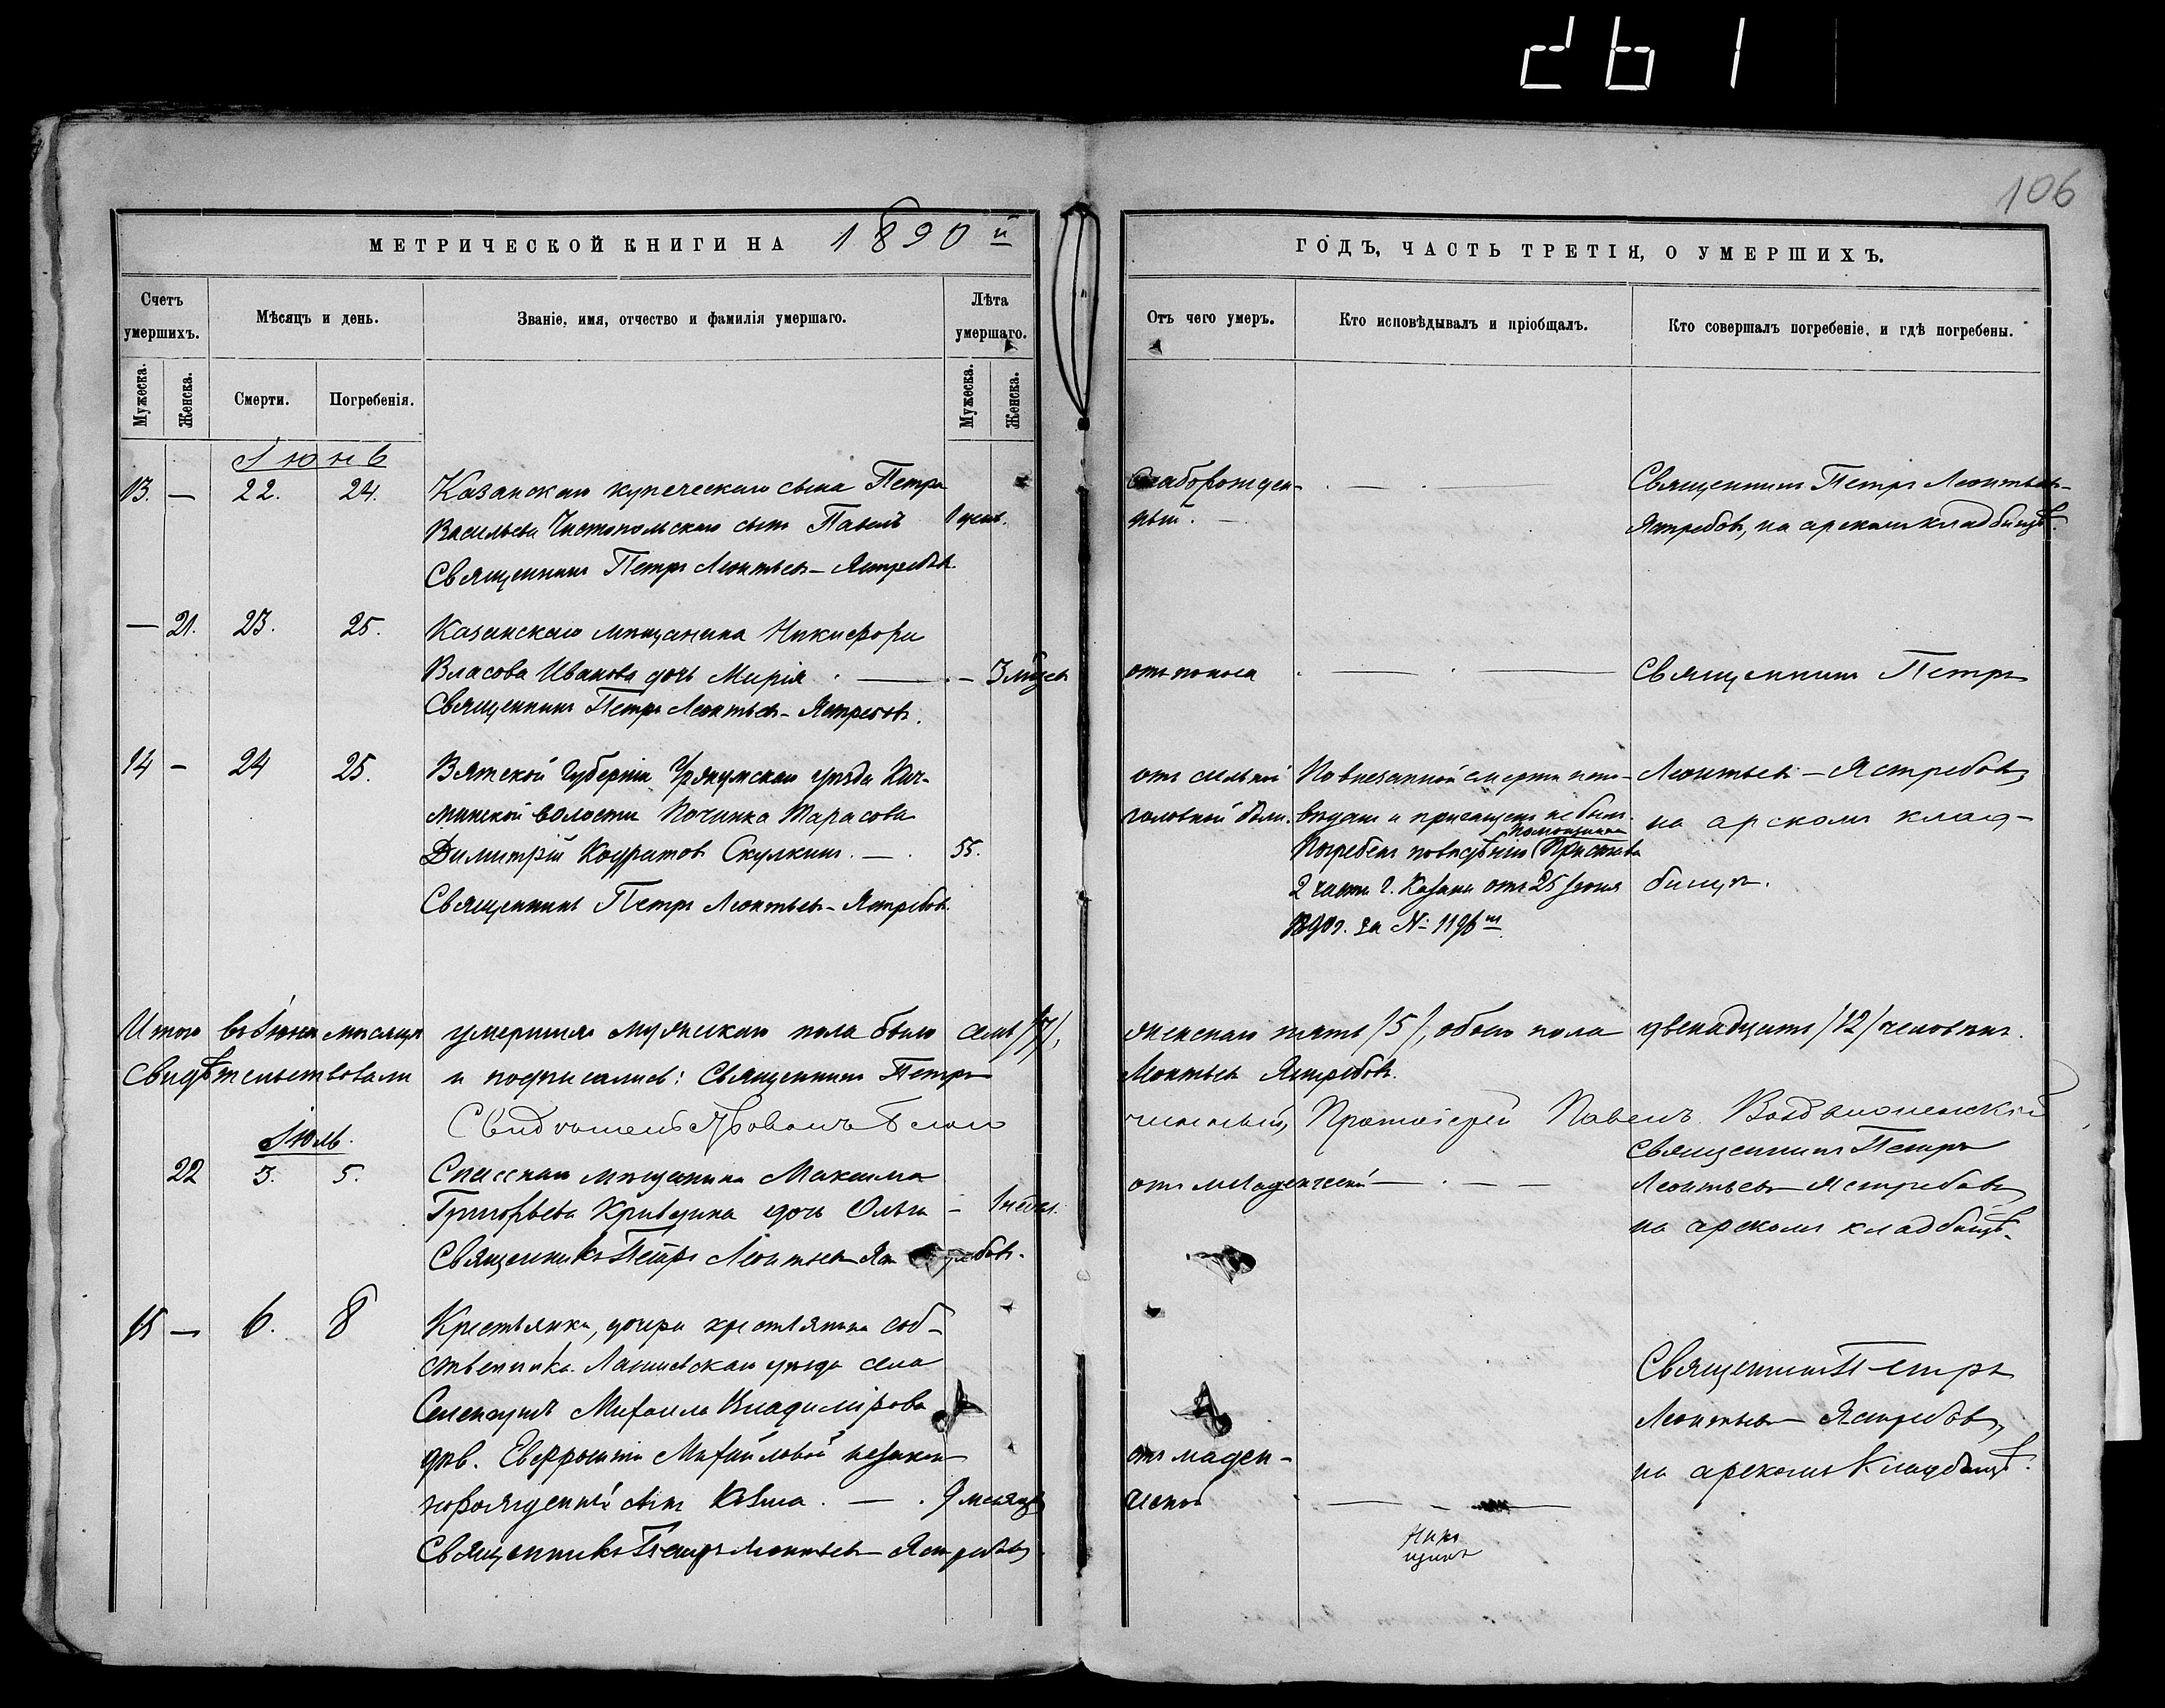 261
106
МЕТРИЧЕСКОЙ КНИГИ НА 1890 й
ГОДЪ, ЧАСТЬ ТРЕТІЯ, О УМЕРШИХЪ.
Счетъ умершихъ.
Мѣсяцъ и день.
Званіе, имя, отчество и фамилія умершаго.
Лѣта умершаго.
Отъ чего умеръ.
Кто исповѣдывалъ и пріобщалъ.
Кто совершалъ погребеніе, и гдѣ погребены.
Мужеска.
Женска.
Смерти.
Погребенія.
Мужеска.
Женска.
Іюнь
13. — 22. 24. Казанскаго купеческаго сына Петра
Васильева Чистопольскаго сынъ Павелъ 1 день.
Священникъ Петръ Леонтьев-Ястребовъ.
Слаборожден-
ный.
Священникъ Петръ Леонтьев-
Ястребовъ, на арскомъ кладбищѣ.
— 21. 23. 25. Казанскаго мѣщанина Никифора
Власова Иванова дочь Марія — 3 мѣсец
Священникъ Петръ Леонтьев-Ястребовъ.
отъ поноса
Священникъ Петръ
14 — 24 25. Вятской Губерніи Уржумскаго уѣзда Кич-
минской волости Починка Тарасова
Димитрій Кодратов Скулкинъ. — 55.
Священникъ Петръ Леонтьев-Ястребовъ.
отъ сильной
головной боли.
По внезапной смерти испо-
вѣданъ и пріобщенъ не былъ.
помощника
Погребенъ по Пристава
2 части г. Казани отъ 25 Іюня
1890 г. за № 1196 м
Леонтьев-Ястребовъ
на арскомъ клад-
бищѣ.
Итого въ Іюнѣ мѣсяцѣ умершихъ мужескаго пола было семь /7/, женскаго пять /5/, обоего пола двенадцать /12/ человѣкъ.
Свидѣтельствовали и подписались: Священникъ Петръ Леонтьев Ястребовъ.
Протоіерей Павелъ
Іюль.
22 3. 5. Спасскаго мѣщанина Максима
Григорьева Кривцина дочь Ольга — 1 недѣл.
Священникъ Петръ Леонтьев Ястребовъ.
отъ младенческой
Священникъ Петръ
Леонтьев Ястребовъ
на арскомъ кладбищѣ.
15 — 6. 8 Крестьянки, дочери крестьянина соб-
ственника Лаишевскаго уѣзда села
Михаила Владимірова
дѣв. Евфросиніи Михайловой незакон-
норожденный сынъ Косма. — 9 месяцев
Священникъ Петръ Леонтьев Ястребовъ
отъ младен-
ческой
Священникъ Петръ
Леонтьев Ястребовъ,
на арскомъ кладбищѣ.